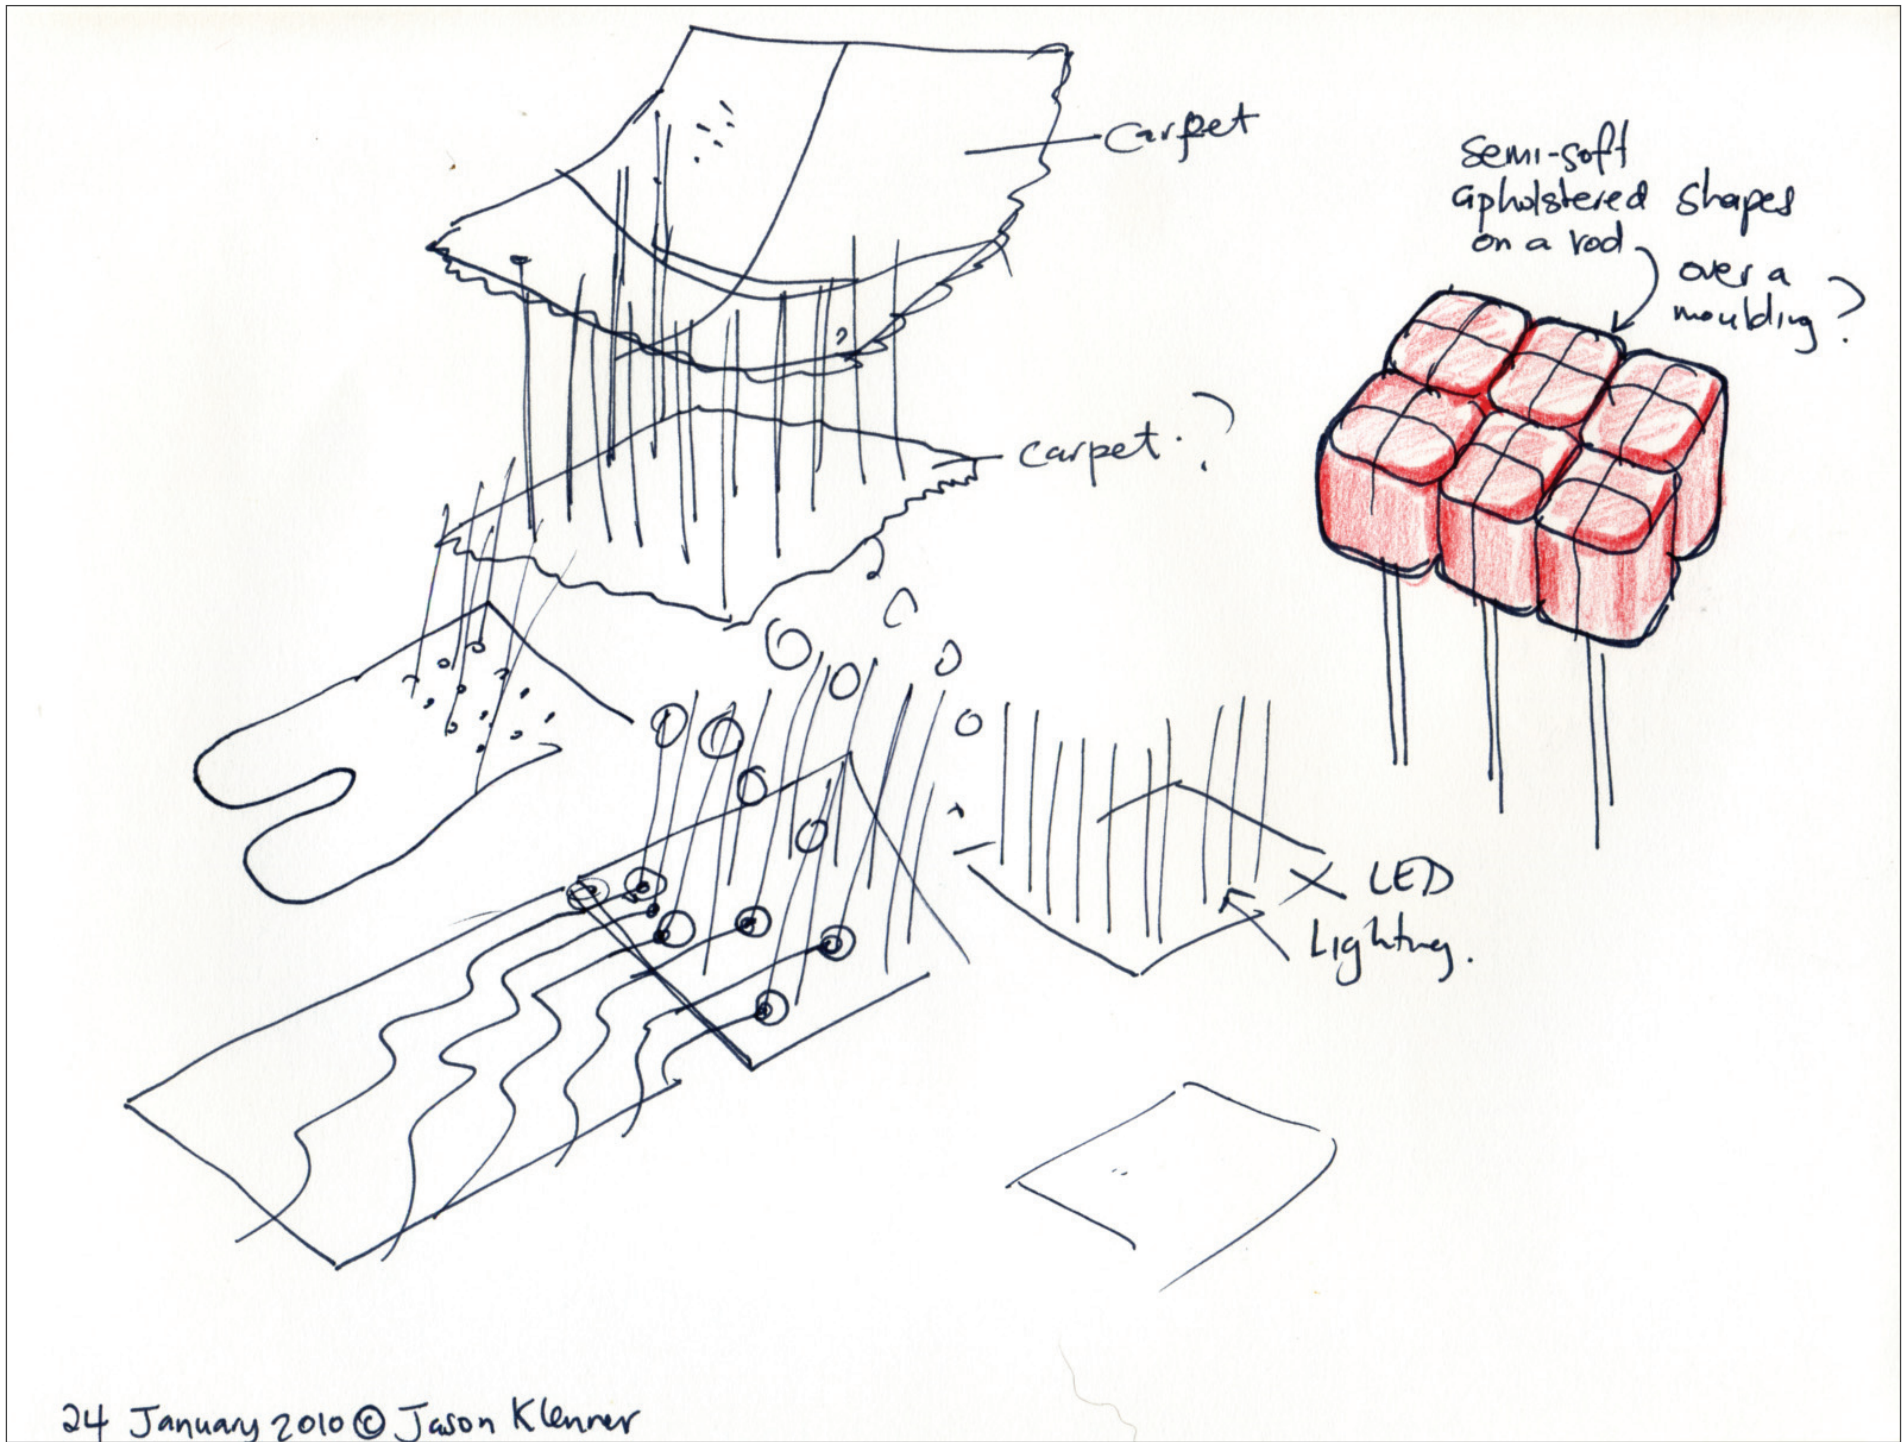 Carpet
Semi-soft
upholstered shapes
on a rod
over a
moulding?
carpet?
LED
Lighting.
24 January 2010 © Jason Klenner